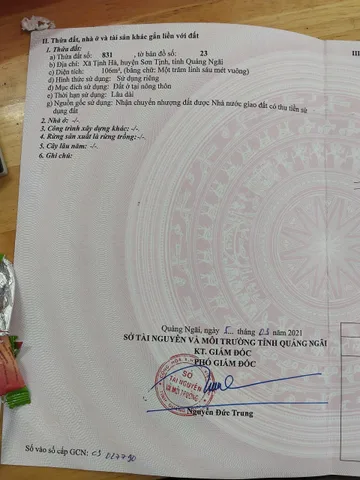 II. Thửa đất, nhà ở và tài sản khác gắn liền với đất
III
1. Thửa đất:
a) Thửa đất số: 831 , tờ bản đồ số: 23
b) Địa chỉ: Xã Tịnh Hà, huyện Sơn Tịnh, tỉnh Quảng Ngãi
c) Diện tích: 106m², (bằng chữ: Một trăm linh sáu mét vuông)
d) Hình thức sử dụng: Sử dụng riêng
đ) Mục đích sử dụng: Đất ở tại nông thôn
e) Thời hạn sử dụng: Lâu dài
g) Nguồn gốc sử dụng: Nhận chuyển nhượng đất được Nhà nước giao đất có thu tiền sử
dụng đất
2. Nhà ở: -/-.
3. Công trình xây dựng khác: -/-.
4. Rừng sản xuất là rừng trồng: -/-.
5. Cây lâu năm: -/-.
6. Ghi chú:
Quảng Ngãi, ngày 5 tháng 03 năm 2021
SỞ TÀI NGUYÊN VÀ MÔI TRƯỜNG TỈNH QUẢNG NGÃI
KT. GIÁM ĐỐC
PHÓ GIÁM ĐỐC
SỞ
TÀI NGUYÊN
VÀ MÔI TRƯỜNG
Nguyễn Đức Trung
Số vào sổ cấp GCN: CS 02770